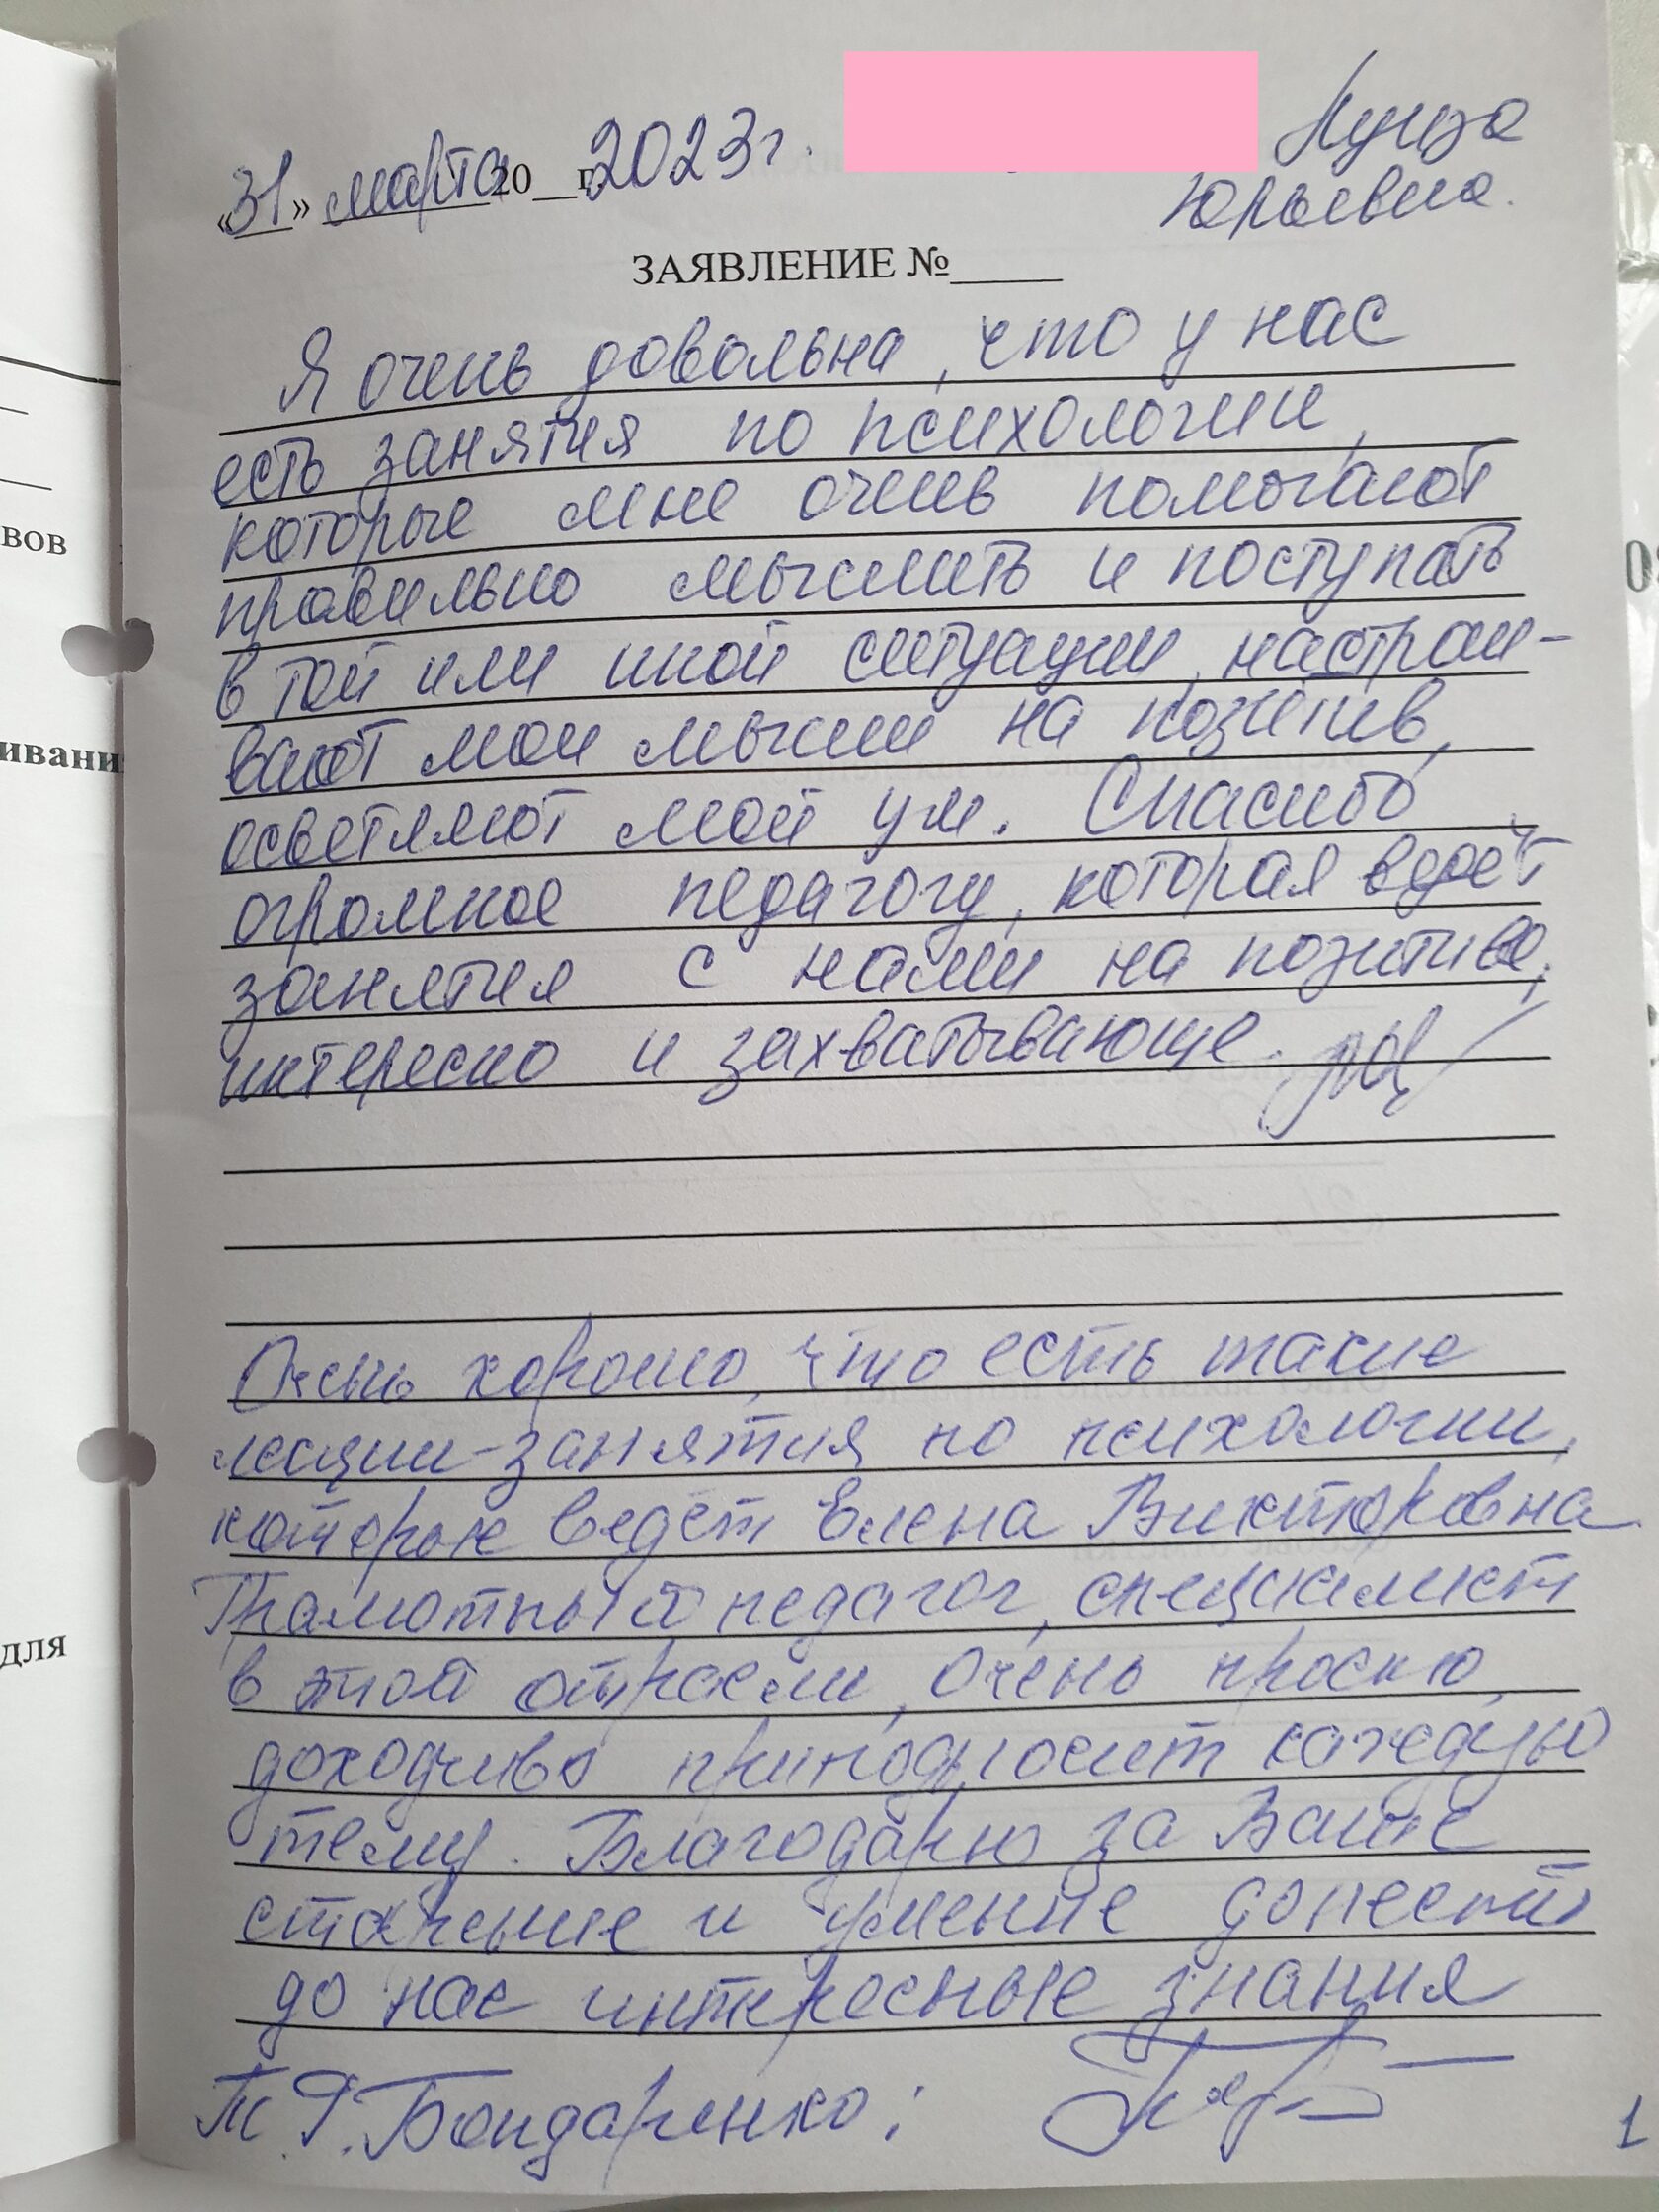 «31» марта 20__г. 2023г.
Луиза
Юрьевна.
ЗАЯВЛЕНИЕ №_____
Я очень довольна, что у нас
есть занятия по психологии,
которые мне очень помогают
правильно мыслить и поступать
в той или иной ситуации, настраи-
вают мои мысли на позитив,
осветляют мой ум. Спасибо
огромное педагогу, которая ведёт
занятия с нами на позитиве,
интересно и захватывающе.
Очень хорошо, что есть такие
лекции-занятия по психологии,
которые ведёт Елена Викторовна
Грамотный педагог, специалист
в этой отрасли, очень просто,
доходчиво приподносит каждую
тему. Благодарю за Ваше
старание и умение донести
до нас интересные знания
Т.Г. Бондаренко:
1
вов
ивани
для